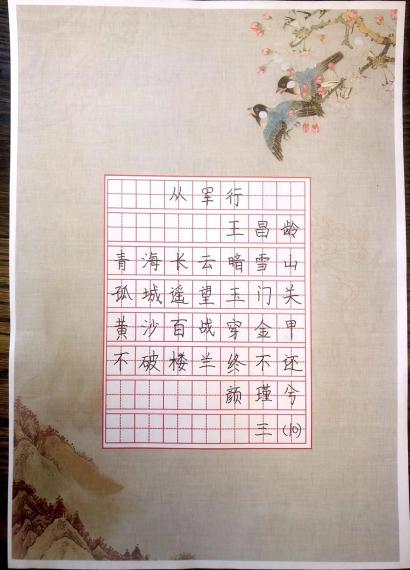 从军行
王昌龄
青海长云暗雪山
孤城遥望玉门关
黄沙百战穿金甲
不破楼兰终不还
颜瑾兮
三(10)